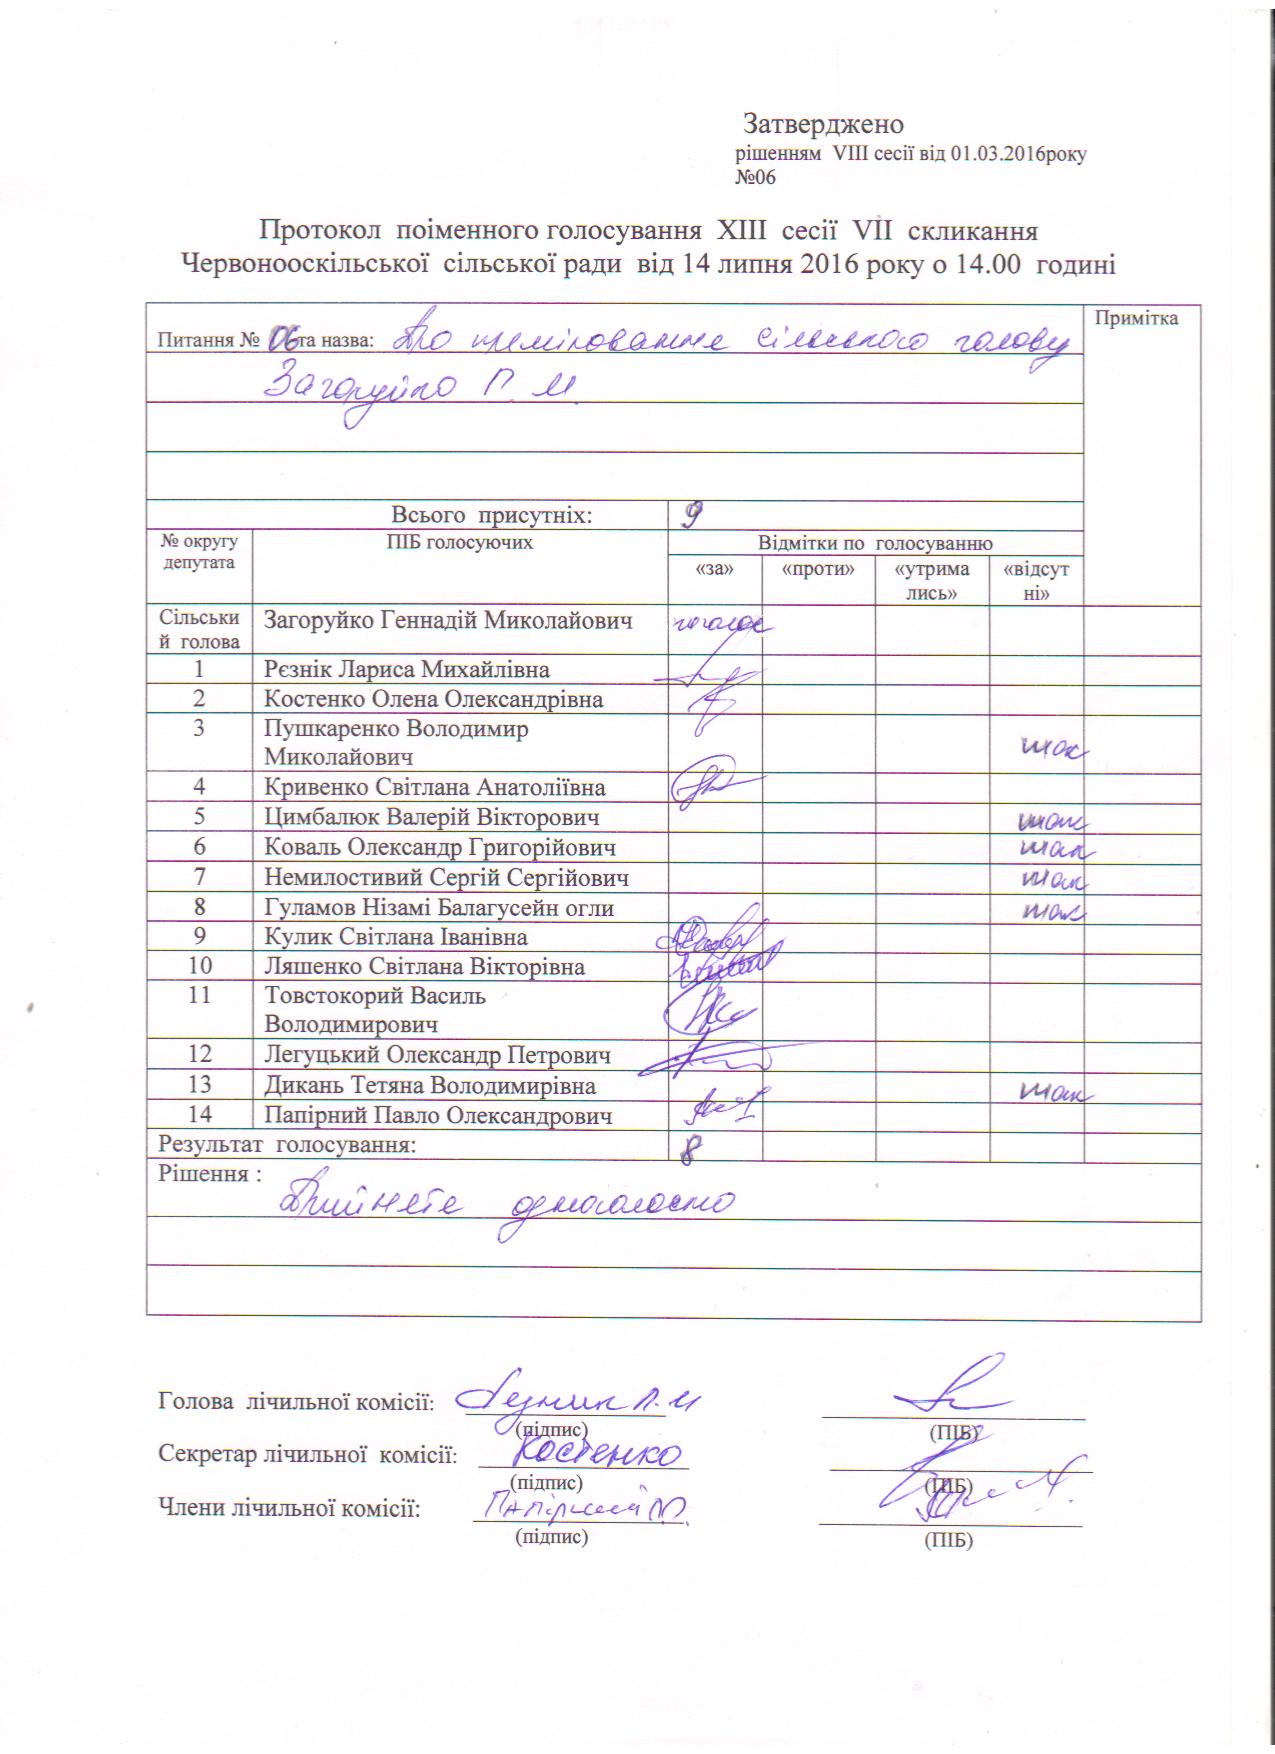 Затверджено
рішенням VIII сесії від 01.03.2016року
№06
Протокол поіменного голосування XIII сесії VII скликання
Червонооскільської сільської ради від 14 липня 2016 року о 14.00 годині
Питання № 06 та назва: Про преміювання сільського голову
Примітка
Загоруйко Г. М.
Всього присутніх: 9
№ округу депутата
ПІБ голосуючих
Відмітки по голосуванню
«за» «проти» «утрима лись» «відсут ні»
Сільськи й голова Загоруйко Геннадій Миколайович
1 Рєзнік Лариса Михайлівна
2 Костенко Олена Олександрівна
3 Пушкаренко Володимир
Миколайович
4 Кривенко Світлана Анатоліївна
5 Цимбалюк Валерій Вікторович
6 Коваль Олександр Григорійович
7 Немилостивий Сергій Сергійович
8 Гуламов Нізамі Балагусейн огли
9 Кулик Світлана Іванівна
10 Ляшенко Світлана Вікторівна
11 Товстокорий Василь
Володимирович
12 Легуцький Олександр Петрович
13 Дикань Тетяна Володимирівна
14 Папірний Павло Олександрович
Результат голосування: 8
Рішення :
Прийнято одноголосно
Голова лічильної комісії: Резник Л. М
(підпис) (ПІБ)
Секретар лічильної комісії: Костенко
(підпис) (ПІБ)
Члени лічильної комісії: Папірний П.
(підпис) (ПІБ)